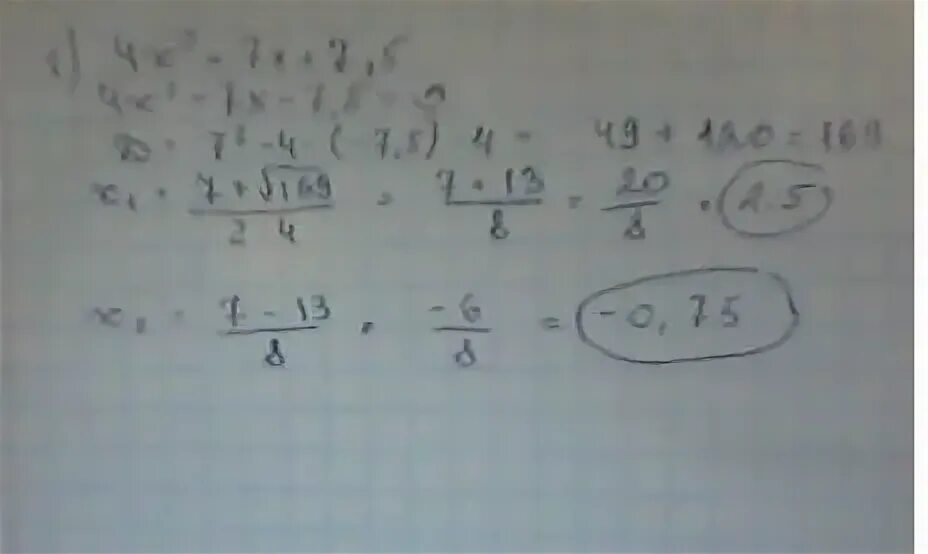 4x² = 7x + 7,5
4x² - 7x - 7,5 = 0
D = 7² - 4 · (-7,5) · 4 = 49 + 120 = 169
x₁ = (7 + √169) / (2 · 4) = (7 + 13) / 8 = 20 / 8 = 2.5
x₂ = (7 - 13) / 8 = -6 / 8 = -0,75